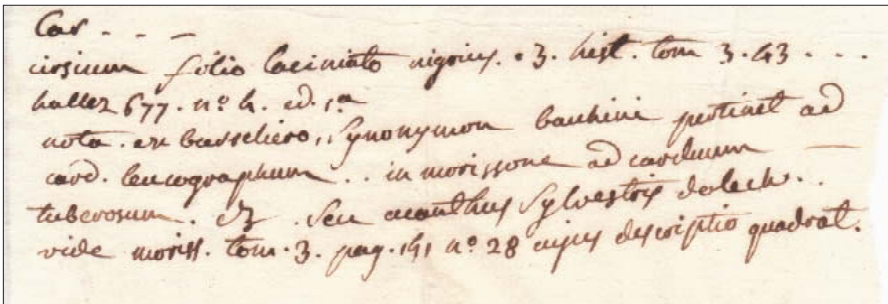 Car - - -
cirsium folio laciniato nigrius. 3. hist. tom 3. 43 . . .
haller 677. nº 4. ed. 1a
nota. ex barreliero, synonymon bauhini pertinet ad
card. leucographum . . in morissone ad carduum —
tuberosum. seu acanthus sylvestris dalech. .
vide moriss. tom. 3. pag. 141 nº 28 cujus descriptio quadrat.